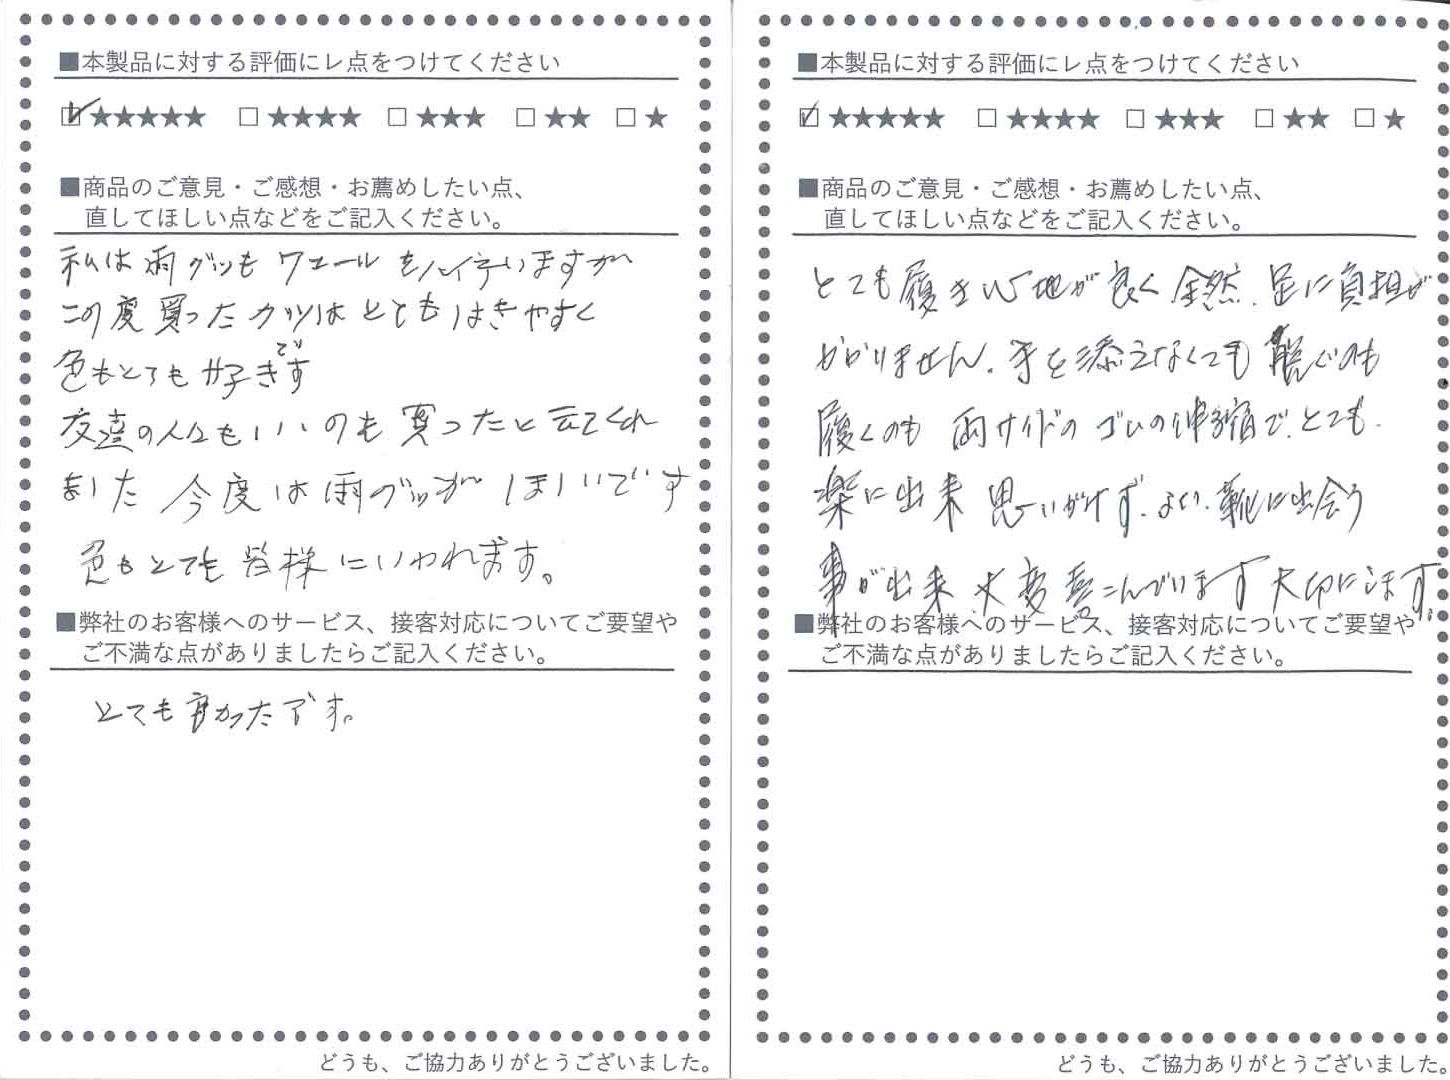 ■本製品に対する評価にレ点をつけてください
☑★★★★★ □★★★★ □★★★ □★★ □★
■商品のご意見・ご感想・お薦めしたい点、
直してほしい点などをご記入ください。
私は雨グツも ワェール をハイ ていますが
この度買ったカツはとてもはきやすく
色もとても好きです
友達の人々もいいのも買ったと云てくれ
ました 今度は雨グツがほしいです
色もとても皆様にいわれます。
■弊社のお客様へのサービス、接客対応についてご要望や
ご不満な点がありましたらご記入ください。
とても良かったです。
どうも、ご協力ありがとうございました。
■本製品に対する評価にレ点をつけてください
☑★★★★★ □★★★★ □★★★ □★★ □★
■商品のご意見・ご感想・お薦めしたい点、
直してほしい点などをご記入ください。
とても履き心地が良く全然、足に負担が
かかりません。手を添えなくても脱ぐのも
履くのも両サイドのゴムの伸縮で、とても
楽に出来思いがけず、よい、靴に出会う
事が出来大変喜こんでいます大切にします。
■弊社のお客様へのサービス、接客対応についてご要望や
ご不満な点がありましたらご記入ください。
どうも、ご協力ありがとうございました。